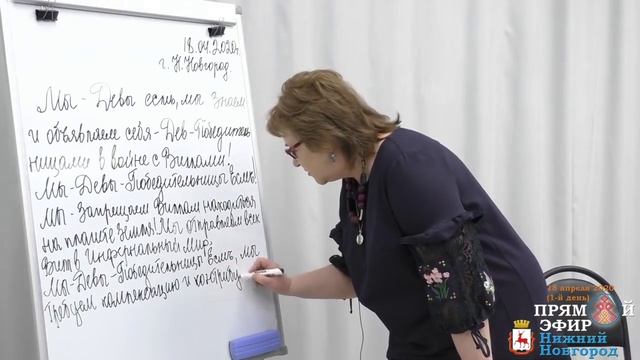 18.04.2020г.
г. Н.Новгород
Мы - Девы есть, мы знаем
и объявляем себя - Дев-Победитель
ницами в войне с Витами!
Мы - Девы - Победительницы Есмь!
Мы - Запрещаем Витам находиться
на планете Земля! Мы отправляем всех
Вит в Инфернальный Мир.
Мы - Девы - Победительницы Есмь, мы
Требуем компенсацию и контрибу
18 апреля 2020
(1-й день)
ПРЯМОЙ
ЭФИР
Нижний
Новгород